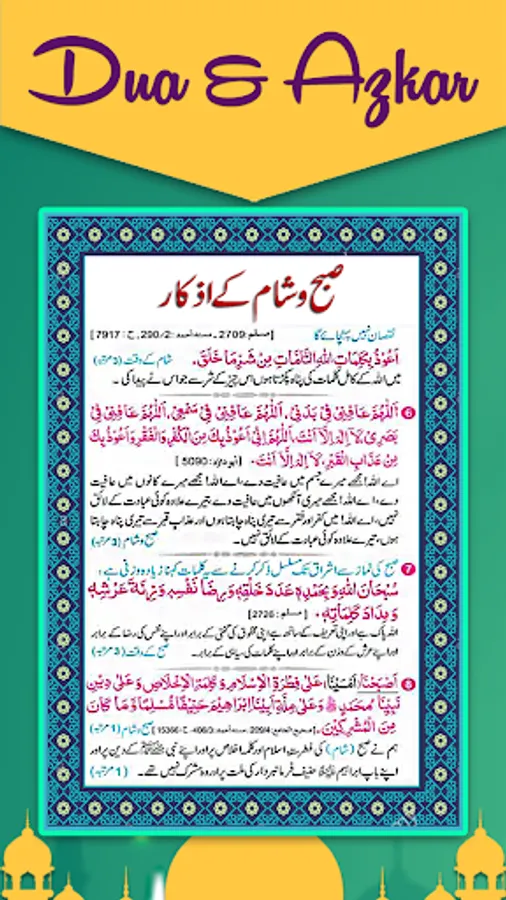 Dua & Azkar
صبح و شام کے اذکار
نقصان نہیں پہنچائے گا [مسلم: 2709، مسند احمد: 290/2، ح: 7917]
اَعُوْذُ بِكَلِمَاتِ اللهِ التَّامَّاتِ مِنْ شَرِّ مَا خَلَقَ. شام کے وقت (3 مرتبہ)
میں اللہ کے کامل کلمات کی پناہ پکڑتا ہوں اس چیز کے شر سے جو اس نے پیدا کی۔
6 اَللّٰهُمَّ عَافِنِيْ فِيْ بَدَنِيْ، اَللّٰهُمَّ عَافِنِيْ فِيْ سَمْعِيْ، اَللّٰهُمَّ عَافِنِيْ فِيْ
بَصَرِيْ، لَآ اِلٰهَ اِلَّا اَنْتَ، اَللّٰهُمَّ اِنِّيْ اَعُوْذُ بِكَ مِنَ الْكُفْرِ وَالْفَقْرِ وَاَعُوْذُ بِكَ
مِنْ عَذَابِ الْقَبْرِ، لَآ اِلٰهَ اِلَّا اَنْتَ. [ابوداؤد: 5090]
اے اللہ! مجھے میرے جسم میں عافیت دے، اے اللہ! مجھے میرے کانوں میں عافیت
دے، اے اللہ! مجھے میری آنکھوں میں عافیت دے، تیرے علاوہ کوئی عبادت کے لائق
نہیں، اے اللہ! میں کفر اور فقر سے تیری پناہ چاہتا ہوں اور عذاب قبر سے تیری پناہ چاہتا
ہوں، تیرے علاوہ کوئی عبادت کے لائق نہیں۔ صبح و شام (3 مرتبہ)
7 صبح کی نماز سے اشراق تک مسلسل ذکر کرنے سے یہ کلمات کہنا زیادہ وزنی ہے:
سُبْحَانَ اللهِ وَبِحَمْدِهٖ عَدَدَ خَلْقِهٖ وَرِضَا نَفْسِهٖ وَزِنَةَ عَرْشِهٖ
وَمِدَادَ كَلِمَاتِهٖ. [مسلم: 2726]
اللہ پاک ہے اور اپنی تعریف کے ساتھ ہے اپنی مخلوق کی گنتی کے برابر اور اپنے نفس کی رضا کے برابر
اور اپنے عرش کے وزن کے برابر اور اپنے کلمات کی سیاہی کے برابر۔ صبح کے وقت (3 مرتبہ)
8 اَصْبَحْنَا/اَمْسَيْنَا عَلٰى فِطْرَةِ الْاِسْلَامِ وَكَلِمَةِ الْاِخْلَاصِ وَعَلٰى دِيْنِ
نَبِيِّنَا مُحَمَّدٍ ﷺ وَعَلٰى مِلَّةِ اَبِيْنَا اِبْرَاهِيْمَ حَنِيْفًا مُّسْلِمًا وَّمَا كَانَ
مِنَ الْمُشْرِكِيْنَ. صبح و شام (1 مرتبہ)
ہم نے صبح (شام) کی فطرت اسلام اور کلمہ اخلاص پر اور اپنے نبی ﷺ کے دین پر اور
اپنے باپ ابراہیم حنیف فرمانبردار کی ملت پر اور وہ مشرک نہیں تھے۔ (1 مرتبہ)